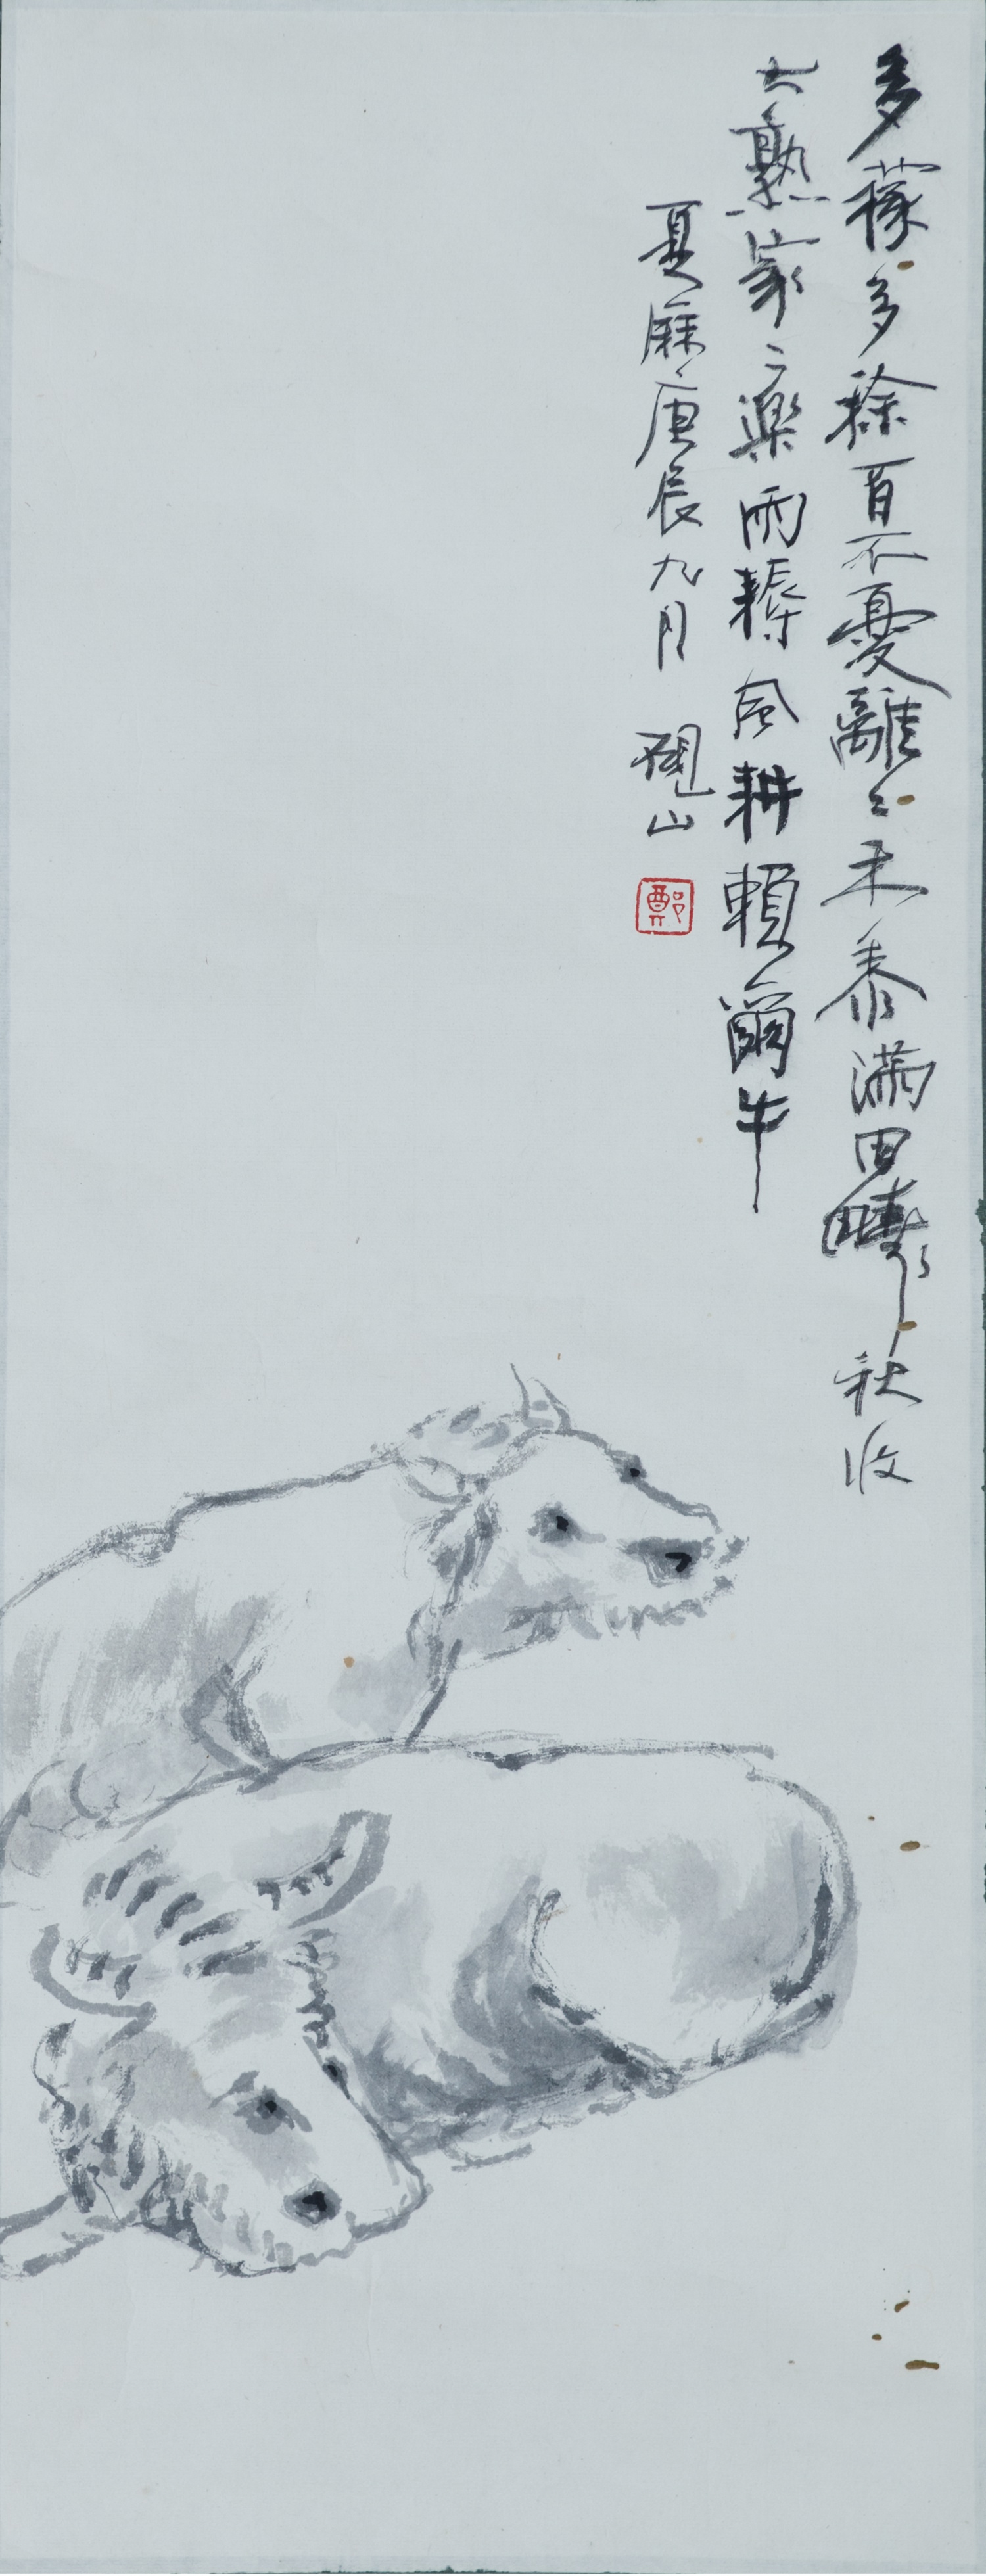 多稼多稌百不憂離〻禾黍滿田疇秋收
大熟家〻樂雨耨風耕賴爾牛
夏厤庚辰九月 硯山
鄭